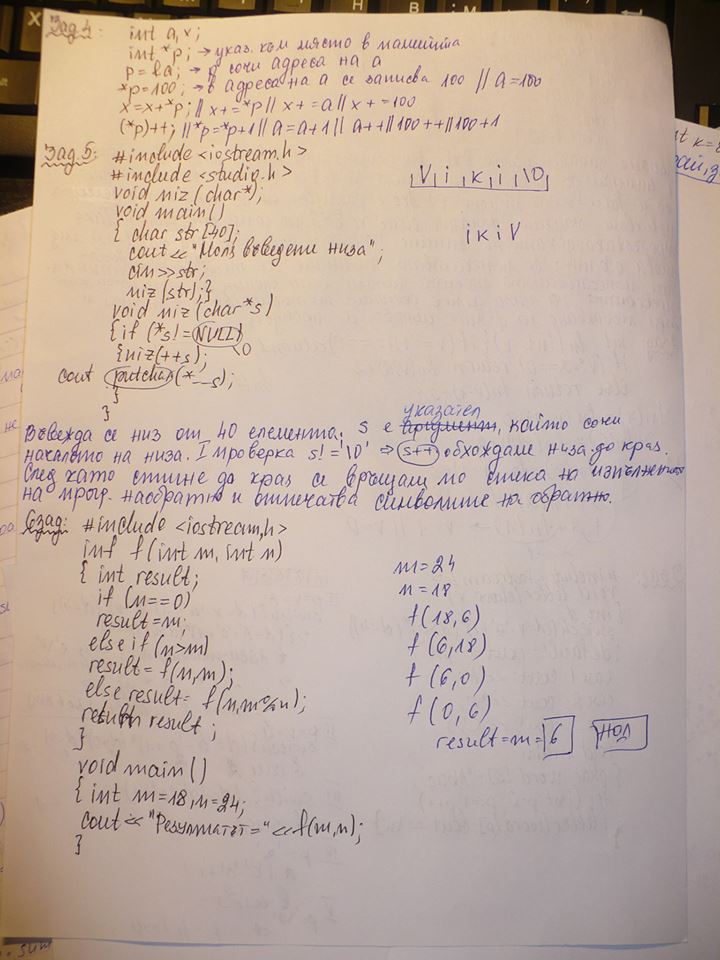 Зад.4: int a,x;
int *p; → указ. към място в паметта
p=&a; → p сочи адреса на a
*p=100; → в адреса на a се записва 100 // a=100
x=x+*p; // x+=*p // x+=a // x+=100
(*p)++; // *p=*p+1 // a=a+1 // a++ // 100++ // 100+1
Зад.5: #include <iostream.h>
#include <studio.h>
void niz(char*);
void main()
{ char str[40];
cout<<"Моля въведете низа";
cin>>str;
niz(str);}
void niz(char*s)
{if (*s!=NULL)
0
{niz(++s);
cout putchar(*--s);
}
}
V i k i \0
i k i V
указател
Въвежда се низ от 40 елемента. s е, който сочи
началото на низа. I проверка s!='\0' => s++ обхождаме низа до края.
След като стигне до край се връщаме по стека на
на прогр. наобратно и отпечатва символите на обратно.
6зад: #include <iostream.h>
int f(int m, int n)
{ int result;
if (n==0)
result=m;
else if (n>m)
result= f(n,m);
else result= f(n,m%n);
return result;
}
void main()
{ int m=18,n=24;
cout<<"Резултатът="<<f(m,n);
}
m=24
n=18
f(18,6)
f(6,18)
f(6,0)
f(0,6)
result=m=6 НОД
int k=